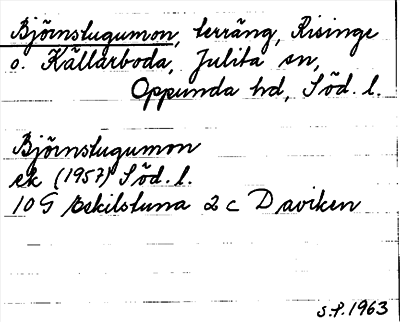 Björnstugumon, terräng, Risinge
o. Källarboda, Julita sn,
Oppunda hd, Söd. l.
Björnstugumon
ek (1957) Söd. l.
10 G Eskilstuna 2 c Daviken
S.P. 1963